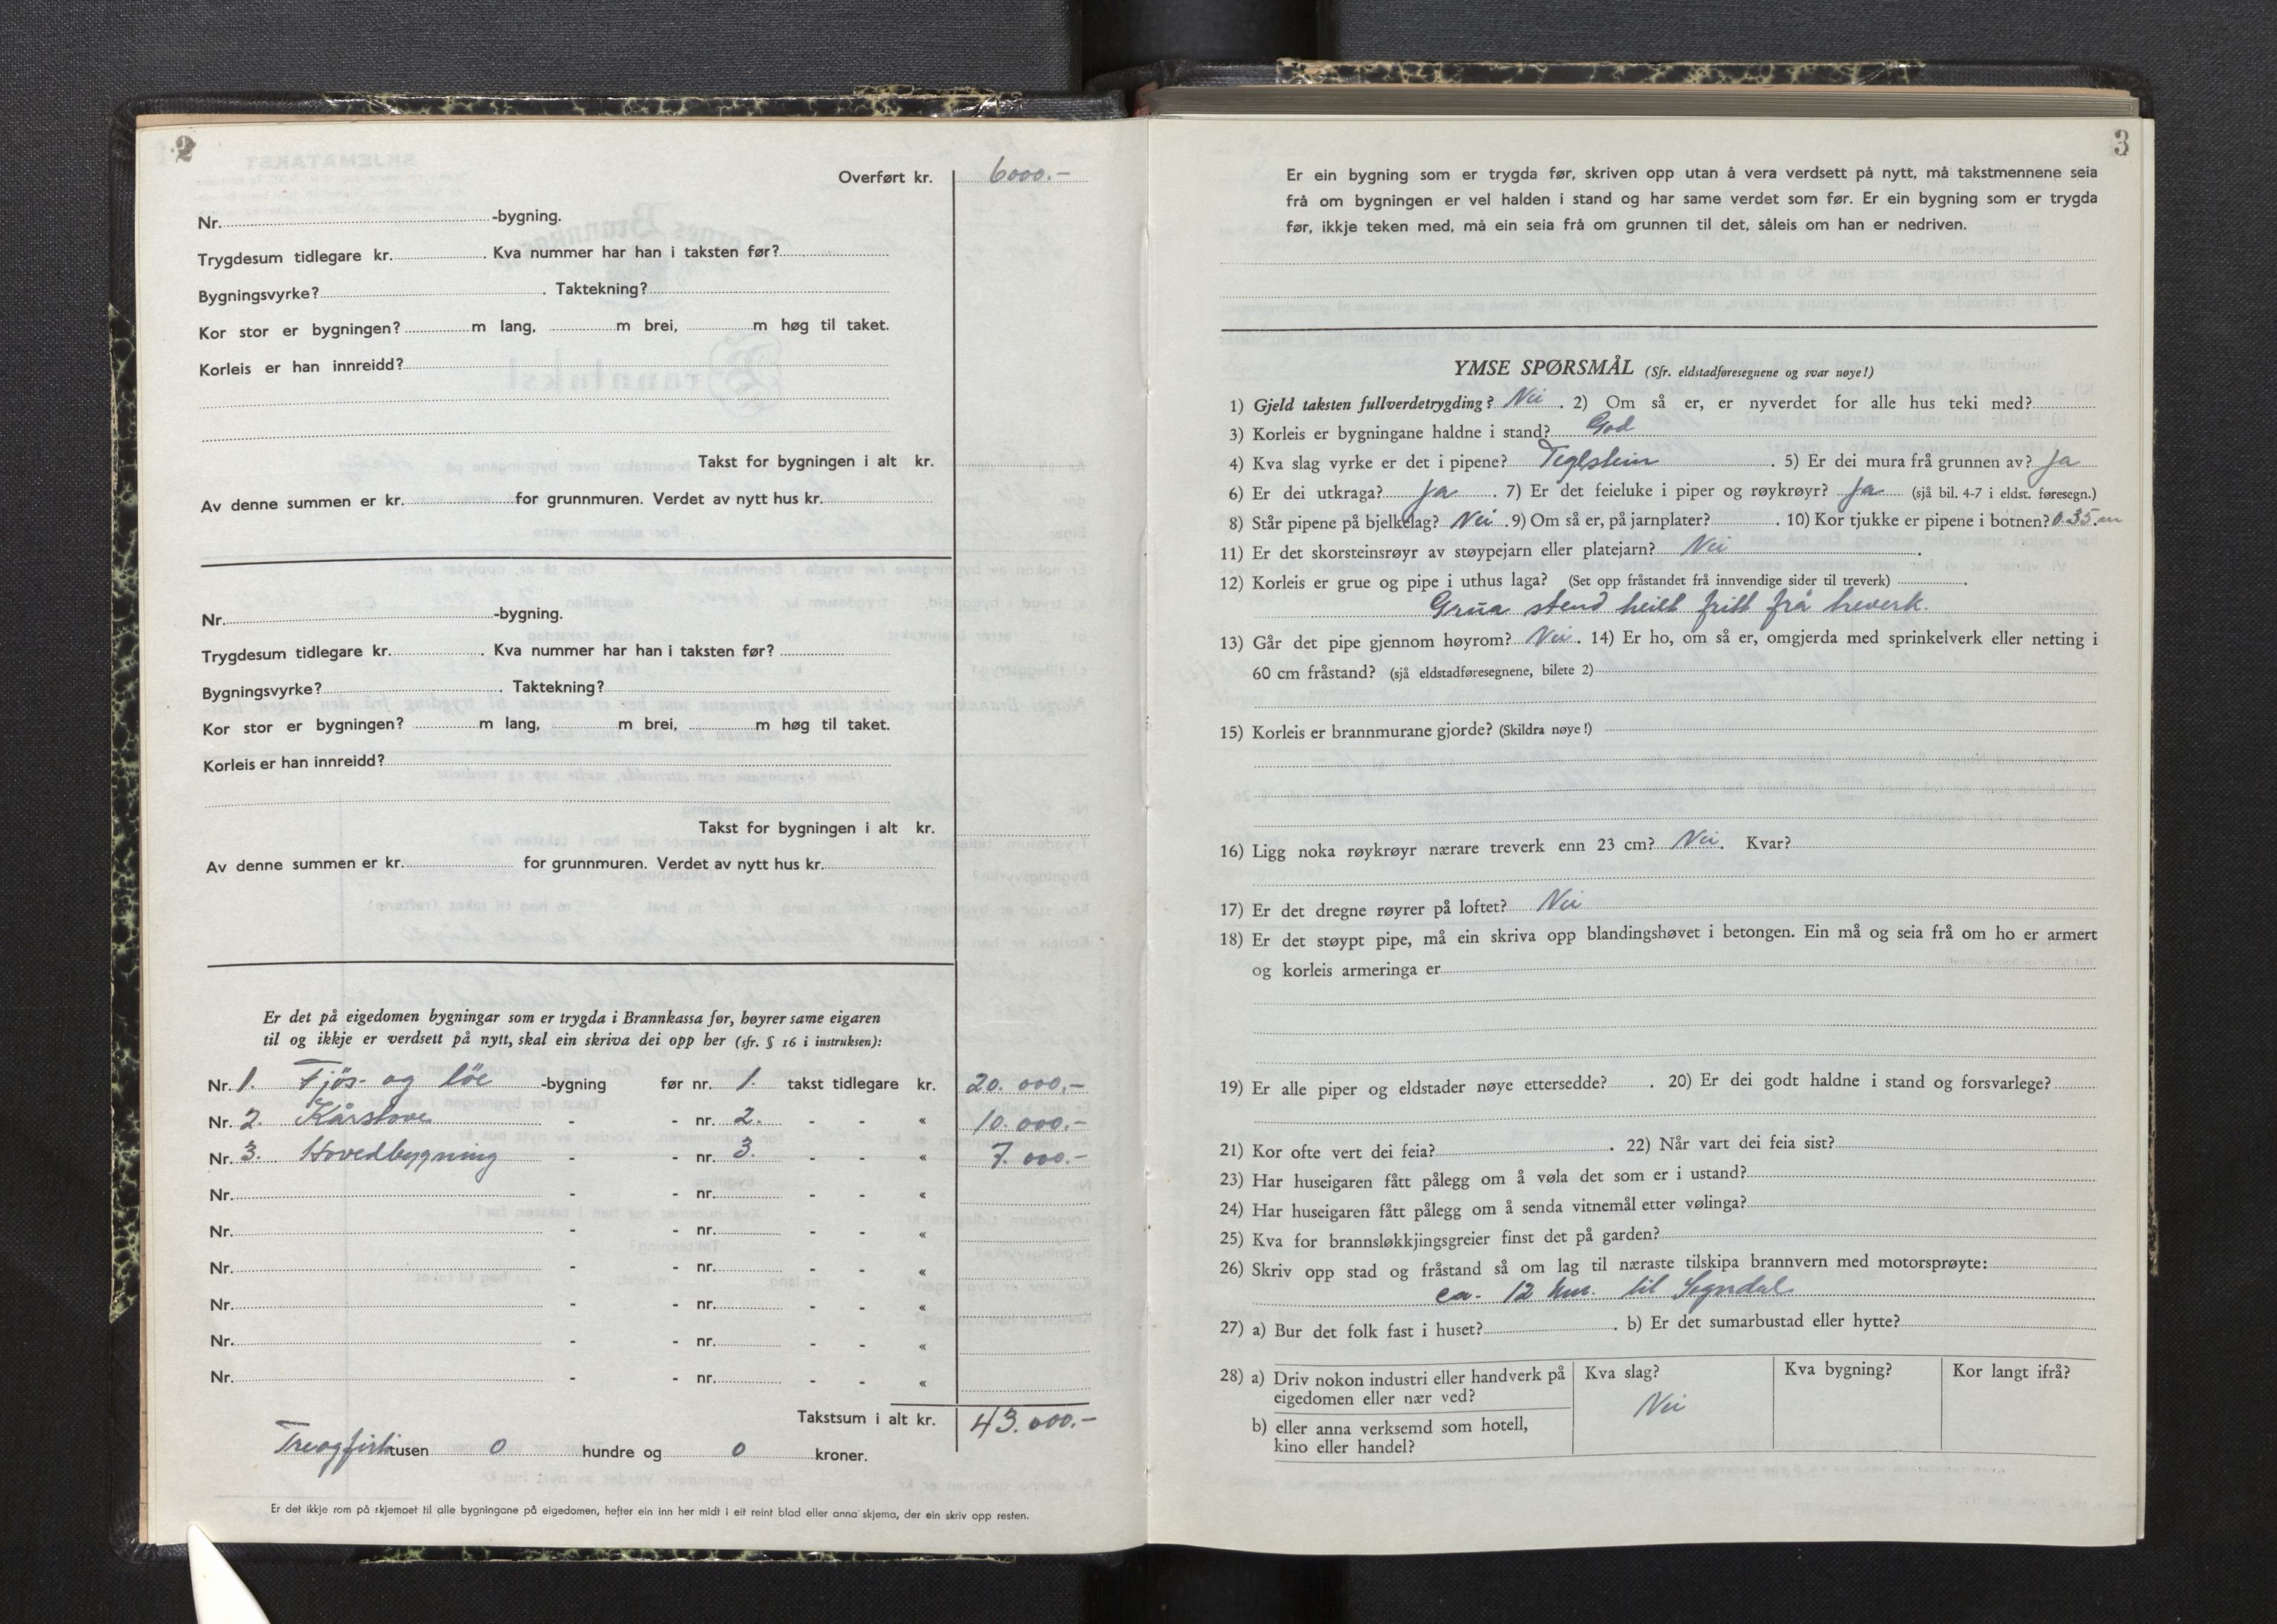 2
Overført kr. 6000.-
Nr. -bygning.
Trygdesum tidlegare kr. . Kva nummer har han i taksten før?
Bygningsvyrke? . Taktekning?
Kor stor er bygningen? m lang, m brei, m høg til taket.
Korleis er han innreidd?
Takst for bygningen i alt kr.
Av denne summen er kr. for grunnmuren. Verdet av nytt hus kr.
Nr. -bygning.
Trygdesum tidlegare kr. . Kva nummer har han i taksten før?
Bygningsvyrke? . Taktekning?
Kor stor er bygningen? m lang, m brei, m høg til taket.
Korleis er han innreidd?
Takst for bygningen i alt kr.
Av denne summen er kr. for grunnmuren. Verdet av nytt hus kr.
Er det på eigedomen bygningar som er trygda i Brannkassa før, høyrer same eigaren
til og ikkje er verdsett på nytt, skal ein skriva dei opp her (sfr. § 16 i instruksen):
Nr. 1. Fjös- og löe -bygning før nr. 1. takst tidlegare kr. 20.000,-
Nr. 2. Kårstove - - nr. 2. - - « 10.000.-
Nr. 3. Hovedbygning - - nr. 3. - - « 7.000.-
Nr. - - nr. - - «
Nr. - - nr. - - «
Nr. - - nr. - - «
Nr. - - nr. - - «
Nr. - - nr. - - «
Nr. - - nr. - - «
Takstsum i alt kr. 43.000.-
Treogfirti tusen 0 hundre og 0 kroner.
Er det ikkje rom på skjemaet til alle bygningane på eigedomen, hefter ein inn her midt i eit reint blad eller anna skjema, der ein skriv opp resten.
3
Er ein bygning som er trygda før, skriven opp utan å vera verdsett på nytt, må takstmennene seia
frå om bygningen er vel halden i stand og har same verdet som før. Er ein bygning som er trygda
før, ikkje teken med, må ein seia frå om grunnen til det, såleis om han er nedriven.
YMSE SPØRSMÅL (Sfr. eldstadføresegnene og svar nøye!)
1) Gjeld taksten fullverdetrygding? Nei . 2) Om så er, er nyverdet for alle hus teki med?
3) Korleis er bygningane haldne i stand? God
4) Kva slag vyrke er det i pipene? Teglstein . 5) Er dei mura frå grunnen av? Ja
6) Er dei utkraga? Ja . 7) Er det feieluke i piper og røykrøyr? Ja (sjå bil. 4-7 i eldst. føresegn.)
8) Står pipene på bjelkelag? Nei . 9) Om så er, på jarnplater? . 10) Kor tjukke er pipene i botnen? 0.35.m
11) Er det skorsteinsrøyr av støypejarn eller platejarn? Nei .
12) Korleis er grue og pipe i uthus laga? (Set opp fråstandet frå innvendige sider til treverk) .
Grua stend heilt fritt frå treverk.
13) Går det pipe gjennom høyrom? Nei . 14) Er ho, om så er, omgjerda med sprinkelverk eller netting i
60 cm fråstand? (sjå eldstadføresegnene, bilete 2)
15) Korleis er brannmurane gjorde? (Skildra nøye!)
16) Ligg noka røykrøyr nærare treverk enn 23 cm? Nei. Kvar?
17) Er det dregne røyrer på loftet? Nei
18) Er det støypt pipe, må ein skriva opp blandingshøvet i betongen. Ein må og seia frå om ho er armert
og korleis armeringa er
19) Er alle piper og eldstader nøye ettersedde? . 20) Er dei godt haldne i stand og forsvarlege?
21) Kor ofte vert dei feia? . 22) Når vart dei feia sist?
23) Har huseigaren fått pålegg om å vøla det som er i ustand?
24) Har huseigaren fått pålegg om å senda vitnemål etter vølinga?
25) Kva for brannsløkkjingsgreier finst det på garden?
26) Skriv opp stad og fråstand så om lag til næraste tilskipa brannvern med motorsprøyte:
ca. 12 km. til Sogndal
27) a) Bur det folk fast i huset? . b) Er det sumarbustad eller hytte?
28) a) Driv nokon industri eller handverk på Kva slag? Kva bygning? Kor langt ifrå?
eigedomen eller nær ved?
Nei
b) eller anna verksemd som hotell,
kino eller handel?